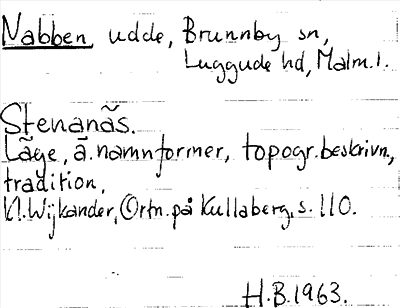 Nabben, udde, Brunnby sn,
Luggude hd, Malm.l.
Stenanäs.
Läge, ä. namnformer, topogr. beskrivn.,
tradition,
N. Wijkander, Ortn. på Kullaberg, s. 110.
H.B. 1963.